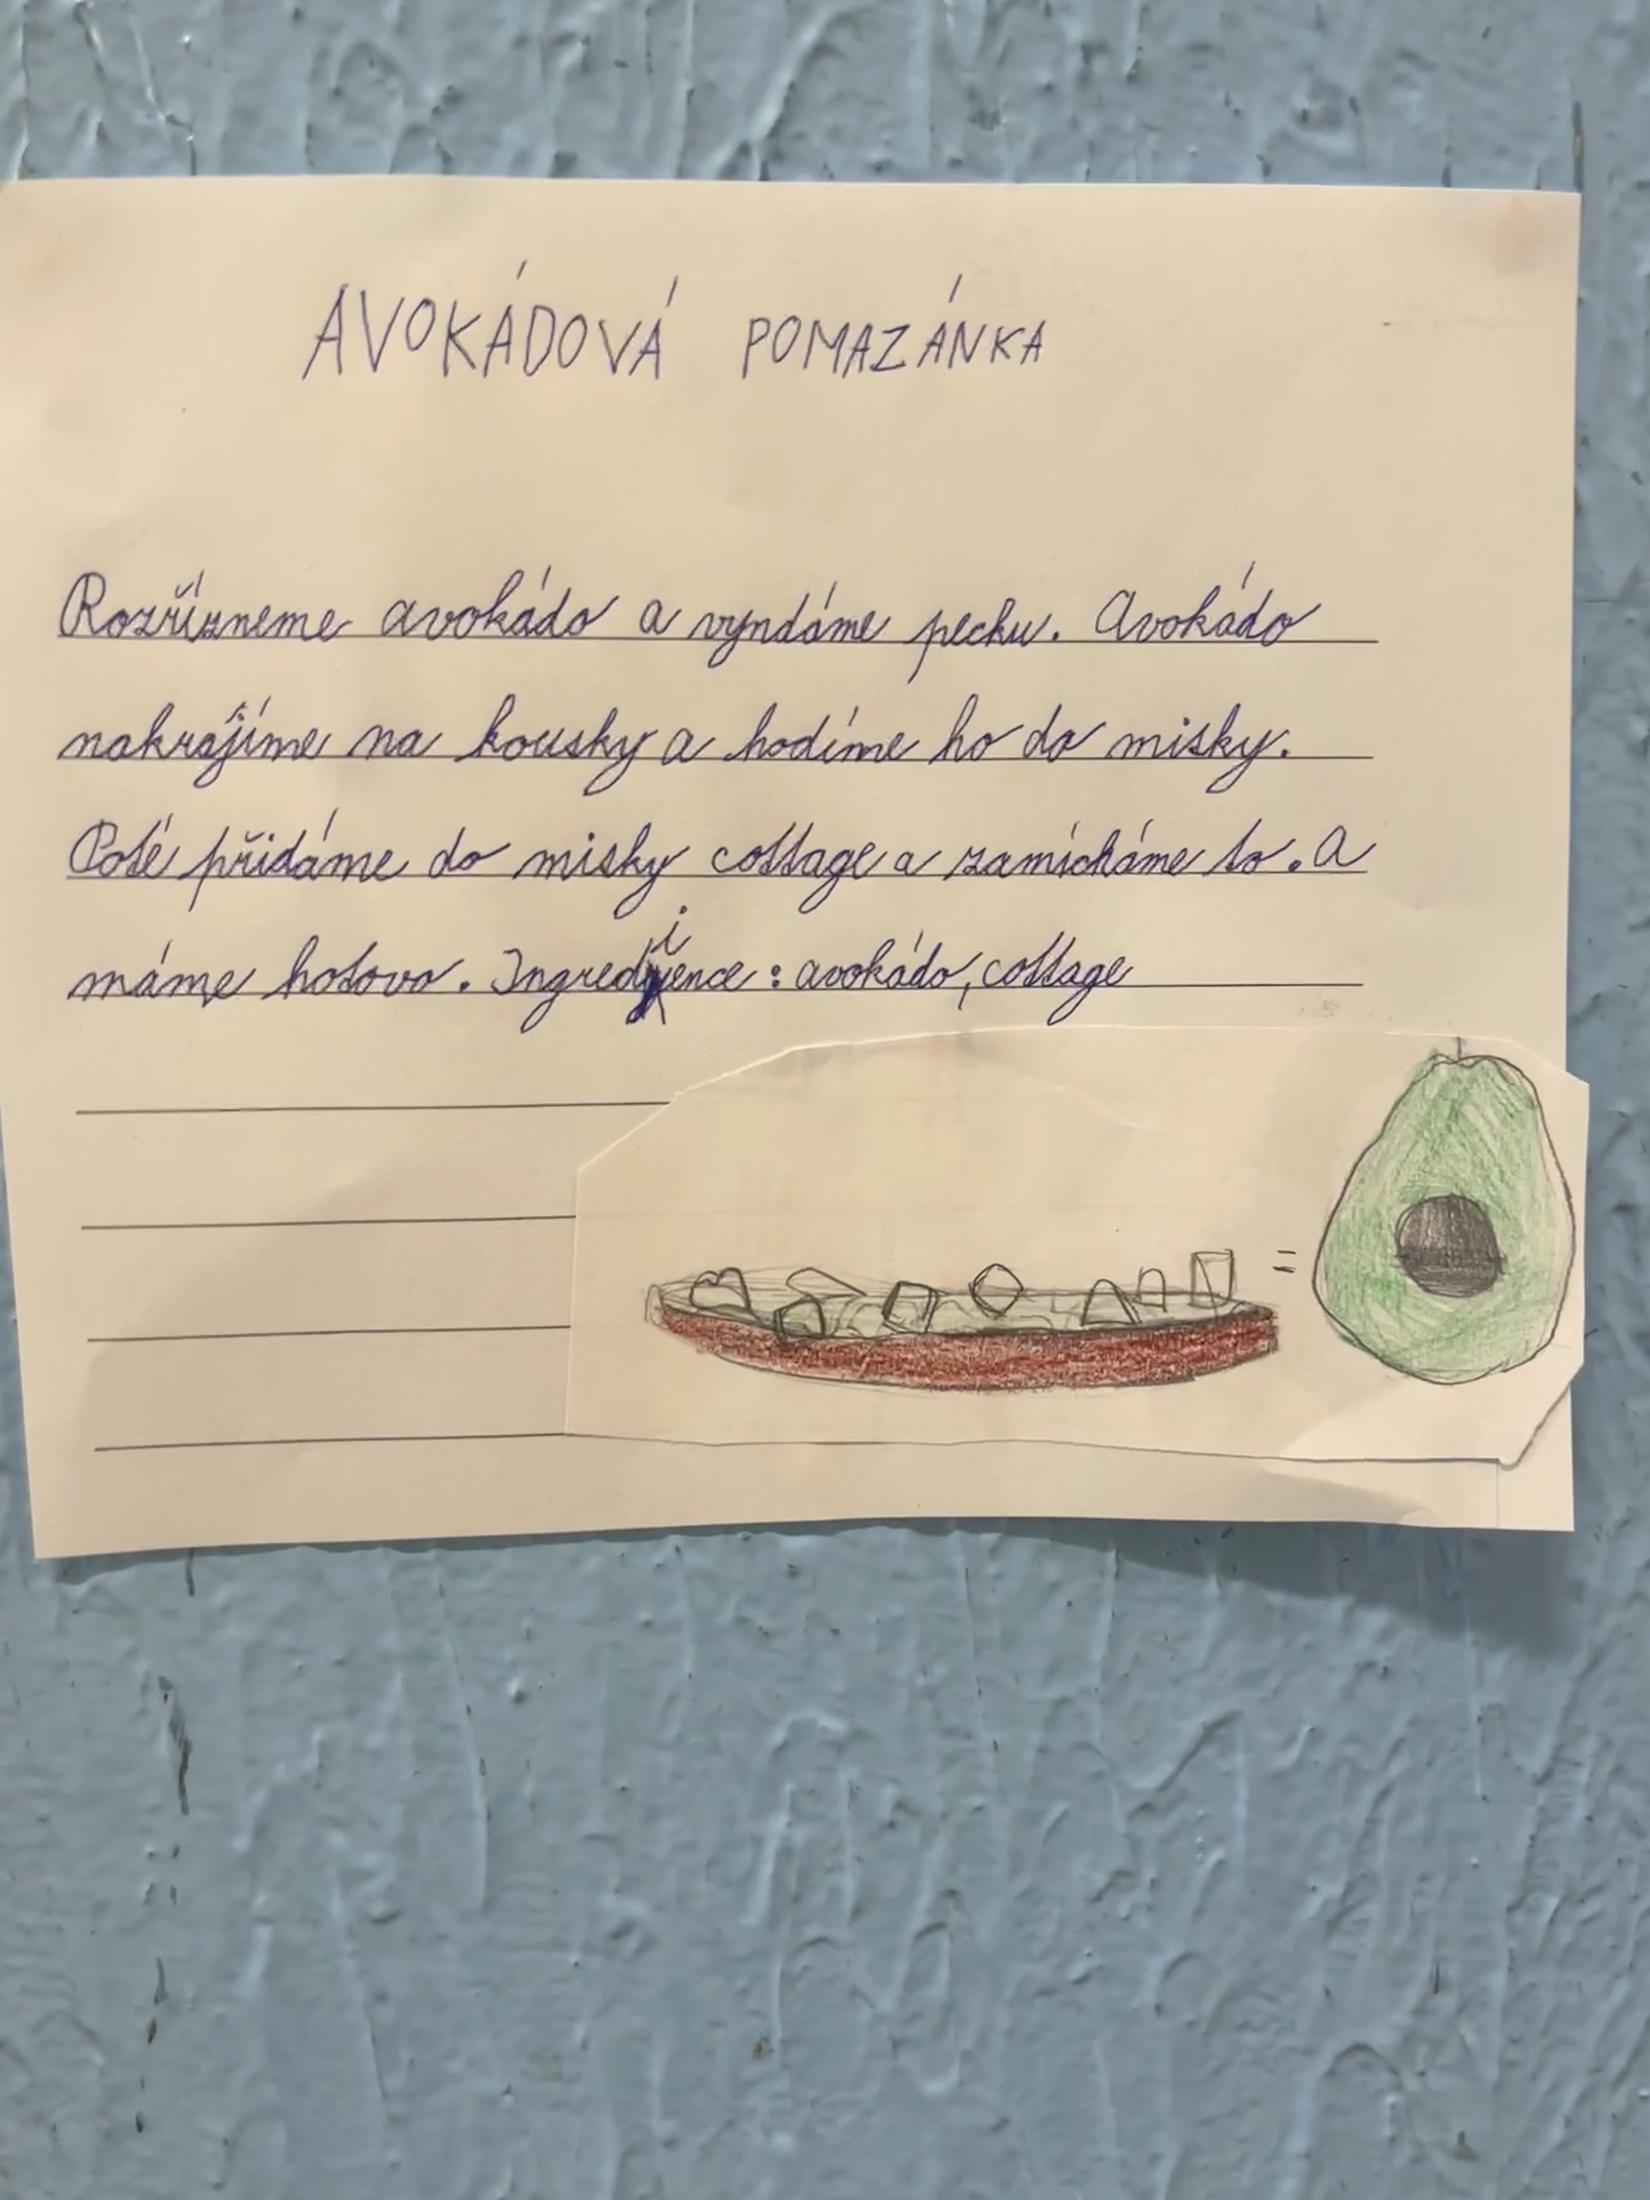 AVOKÁDOVÁ POMAZÁNKA
Rozřízneme avokádo a vyndáme pecku. Avokádo
nakrájíme na kousky a hodíme ho do misky.
Poté přidáme do misky cottage a zamícháme to. A
máme hotovo. Ingredience : avokádo, cottage
=